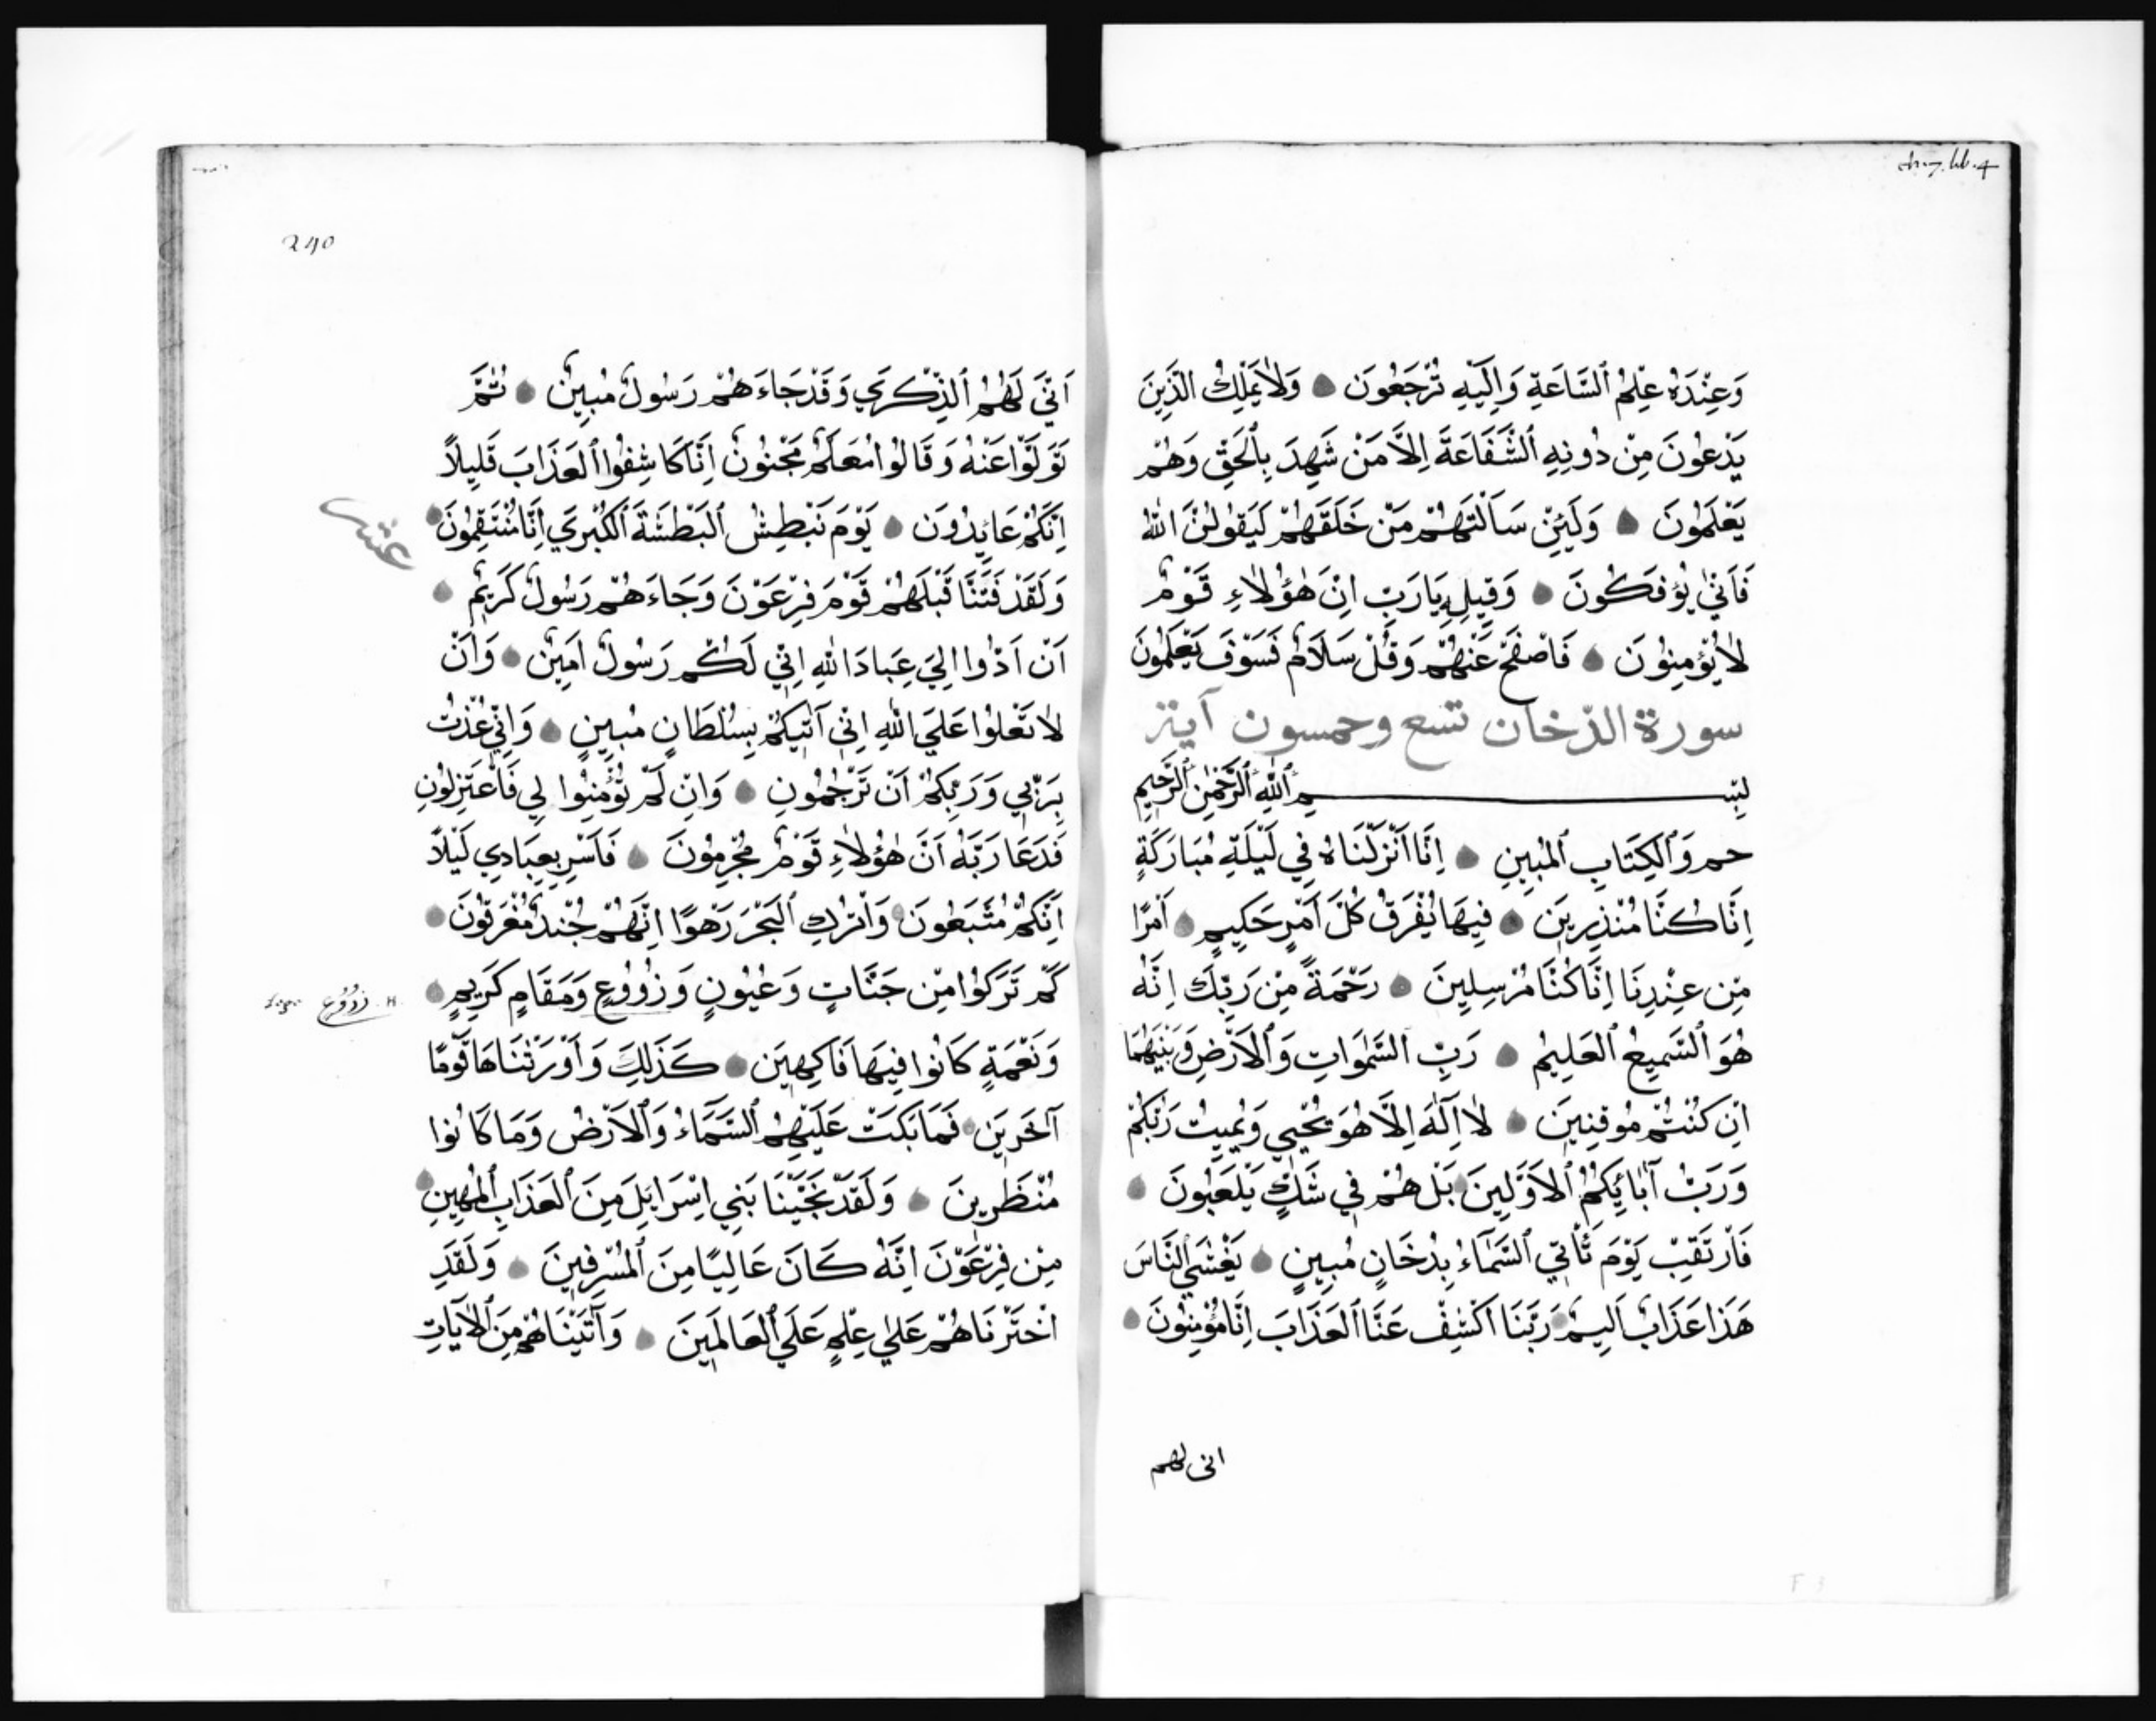 وَعِنْدَهُ عِلْمُ ٱلسَّاعَةِ وَإِلَيْهِ تُرْجَعُونَ وَلَا يَمْلِكُ الَّذِينَ
يَدْعُونَ مِنْ دُونِهِ ٱلشَّفَاعَةَ إِلَّا مَنْ شَهِدَ بِٱلْحَقِّ وَهُمْ
يَعْلَمُونَ وَلَئِنْ سَأَلْتَهُمْ مَنْ خَلَقَهُمْ لَيَقُولُنَّ اللهُ
فَأَنَّى يُؤْفَكُونَ وَقِيلِهِ يَارَبِّ إِنَّ هٰؤُلَاءِ قَوْمٌ
لَا يُؤْمِنُونَ فَاصْفَحْ عَنْهُمْ وَقُلْ سَلَامٌ فَسَوْفَ يَعْلَمُونَ
سورة الدّخان تسع وخمسون آية
بِسْمِ ٱللهِ ٱلرَّحْمٰنِ ٱلرَّحِيمِ
حم وَٱلْكِتَابِ ٱلْمُبِينِ إِنَّا أَنْزَلْنَاهُ فِي لَيْلَةٍ مُبَارَكَةٍ
إِنَّا كُنَّا مُنْذِرِينَ فِيهَا يُفْرَقُ كُلُّ أَمْرٍ حَكِيمٍ أَمْرًا
مِنْ عِنْدِنَا إِنَّا كُنَّا مُرْسِلِينَ رَحْمَةً مِنْ رَبِّكَ إِنَّهُ
هُوَ ٱلسَّمِيعُ ٱلْعَلِيمُ رَبِّ ٱلسَّمٰوَاتِ وَٱلْأَرْضِ وَبَيْنَهُمَا
إِنْ كُنْتُمْ مُوقِنِينَ لَا إِلٰهَ إِلَّا هُوَ يُحْيِي وَيُمِيتُ رَبُّكُمْ
وَرَبُّ آبَائِكُمُ ٱلْأَوَّلِينَ بَلْ هُمْ فِي شَكٍّ يَلْعَبُونَ
فَارْتَقِبْ يَوْمَ تَأْتِي ٱلسَّمَاءُ بِدُخَانٍ مُبِينٍ يَغْشَي ٱلنَّاسَ
هَذَا عَذَابٌ أَلِيمٌ رَبَّنَا اكْشِفْ عَنَّا ٱلْعَذَابَ إِنَّا مُؤْمِنُونَ
انى لهم
240
أَنَّي لَهُمُ ٱلذِّكْرَي وَقَدْ جَاءَهُمْ رَسُولٌ مُبِينٌ ثُمَّ
تَوَلَّوْا عَنْهُ وَقَالُوا مُعَلَّمٌ مَجْنُونٌ إِنَّا كَاشِفُوا ٱلْعَذَابَ قَلِيلًا
إِنَّكُمْ عَائِدُونَ يَوْمَ نَبْطِشُ ٱلْبَطْشَةَ ٱلْكُبْرَي إِنَّا مُنْتَقِمُونَ
عشر
وَلَقَدْ فَتَنَّا قَبْلَهُمْ قَوْمَ فِرْعَوْنَ وَجَاءَهُمْ رَسُولٌ كَرِيمٌ
أَنْ أَدُّوا إِلَيَّ عِبَادَ اللهِ إِنِّي لَكُمْ رَسُولٌ أَمِينٌ وَأَنْ
لَا تَعْلُوا عَلَي اللهِ إِنِّي آتِيكُمْ بِسُلْطَانٍ مُبِينٍ وَإِنِّي عُذْتُ
بِرَبِّي وَرَبِّكُمْ أَنْ تَرْجُمُونِ وَإِنْ لَمْ تُؤْمِنُوا لِي فَاعْتَزِلُونِ
فَدَعَا رَبَّهُ أَنَّ هٰؤُلَاءِ قَوْمٌ مُجْرِمُونَ فَأَسْرِ بِعِبَادِي لَيْلًا
إِنَّكُمْ مُتَّبَعُونَ وَاتْرُكِ ٱلْبَحْرَ رَهْوًا إِنَّهُمْ جُنْدٌ مُغْرَقُونَ
كَمْ تَرَكُوا مِنْ جَنَّاتٍ وَعُيُونٍ وَزُوُوعٍ وَمَقَامٍ كَرِيمٍ
وَنَعْمَةٍ كَانُوا فِيهَا فَاكِهِينَ كَذَلِكَ وَأَوْرَثْنَاهَا قَوْمًا
آخَرِينَ فَمَا بَكَتْ عَلَيْهِمُ ٱلسَّمَاءُ وَٱلْأَرْضُ وَمَا كَانُوا
مُنْظَرِينَ وَلَقَدْ نَجَّيْنَا بَنِي إِسْرَايِلَ مِنَ ٱلْعَذَابِ ٱلْمُهِينِ
مِنْ فِرْعَوْنَ إِنَّهُ كَانَ عَالِيًا مِنَ ٱلْمُسْرِفِينَ وَلَقَدِ
اخْتَرْنَاهُمْ عَلَي عِلْمٍ عَلَي ٱلْعَالَمِينَ وَآتَيْنَاهُمْ مِنَ ٱلْآيَاتِ